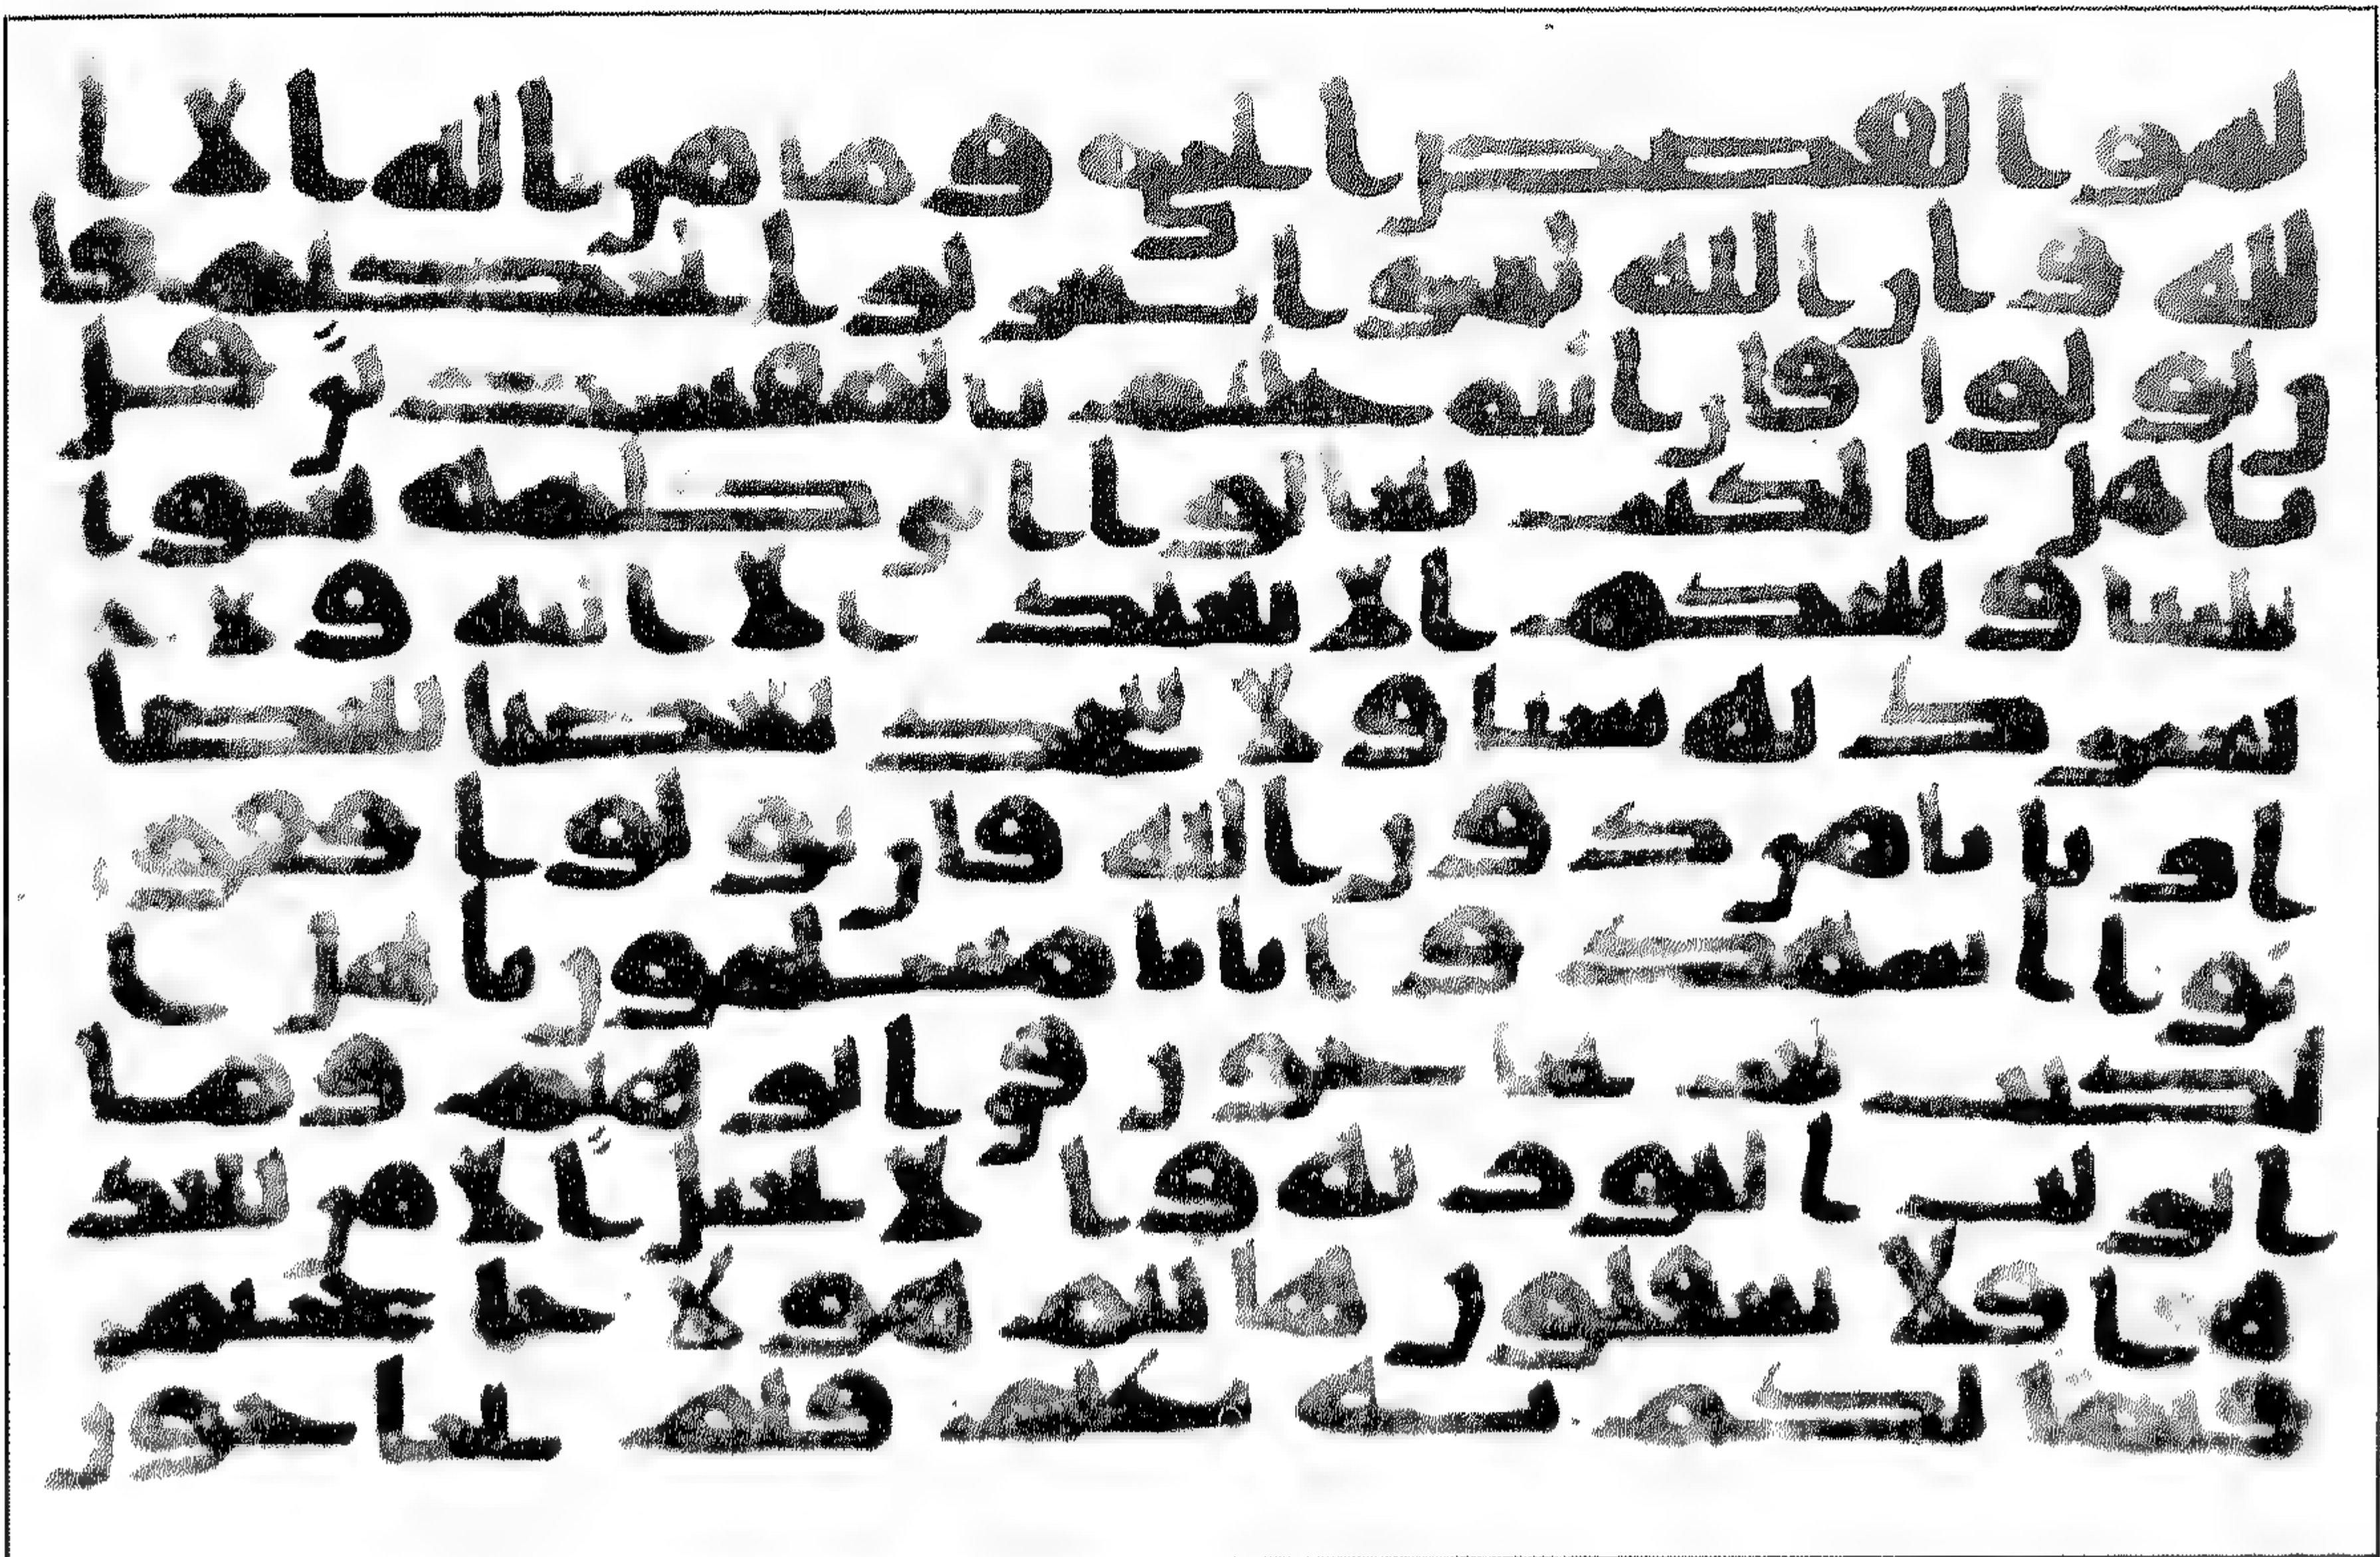 لهو القصص الحق وما من اله الا ا
لله وان الله لهو العزيز الحكيم فا
ن تولوا فان الله عليم بالمفسدين قل
ياهل الكتب تعالوا الى كلمه سوا
بيننا وبينكم الا نعبد الا الله ولا
نشرك به شيا ولا يتخذ بعضنا بعضا
اربابا من دون الله فان تولوا فقو
لوا اشهدوا بانا مسلمون ياهل ا
لكتب لم تحاجون في ابرهيم وما
انزلت التوريه والا نجيل الا من بعد
ه افلا تعقلون هانتم هولا حججتم
فيما لكم به علم فلم تحاجون